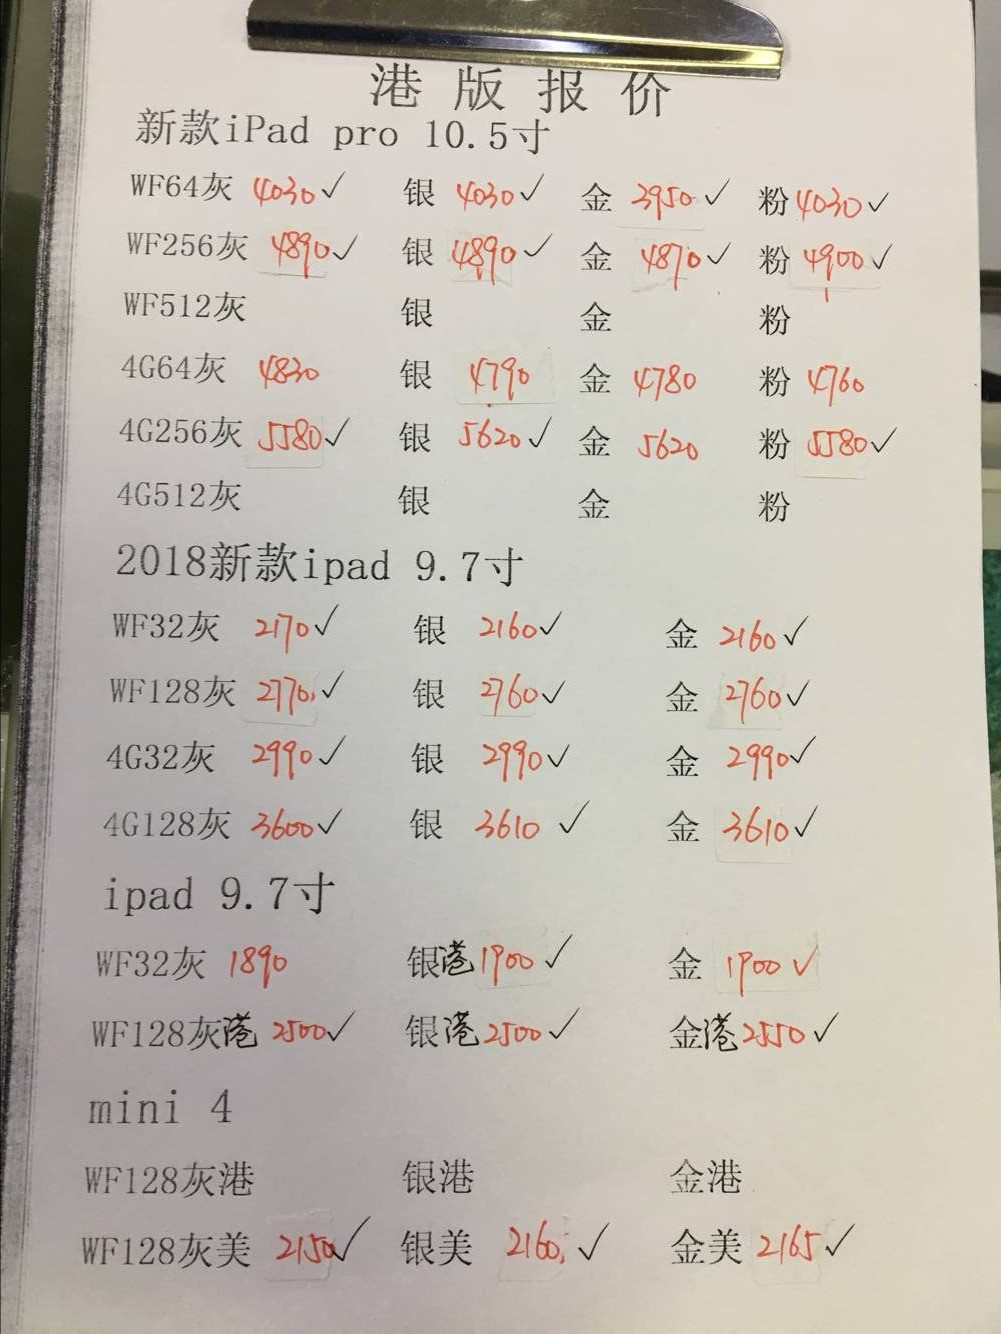 港版报价
新款iPad pro 10.5寸
WF64灰 4030✓ 银 4030✓ 金 3950✓ 粉 4030✓
WF256灰 4890✓ 银 4890✓ 金 4870✓ 粉 4900✓
WF512灰 银 金 粉
4G64灰 4830 银 4790 金 4780 粉 4760
4G256灰 5580✓ 银 5620✓ 金 5620 粉 5580✓
4G512灰 银 金 粉
2018新款ipad 9.7寸
WF32灰 2170✓ 银 2160✓ 金 2160✓
WF128灰 2770✓ 银 2760✓ 金 2760✓
4G32灰 2990✓ 银 2990✓ 金 2990✓
4G128灰 3600✓ 银 3610✓ 金 3610✓
ipad 9.7寸
WF32灰 1890 银港1900✓ 金 1900✓
WF128灰港 2500✓ 银港2500✓ 金港2550✓
mini 4
WF128灰港 银港 金港
WF128灰美 2150✓ 银美 2160✓ 金美 2165✓